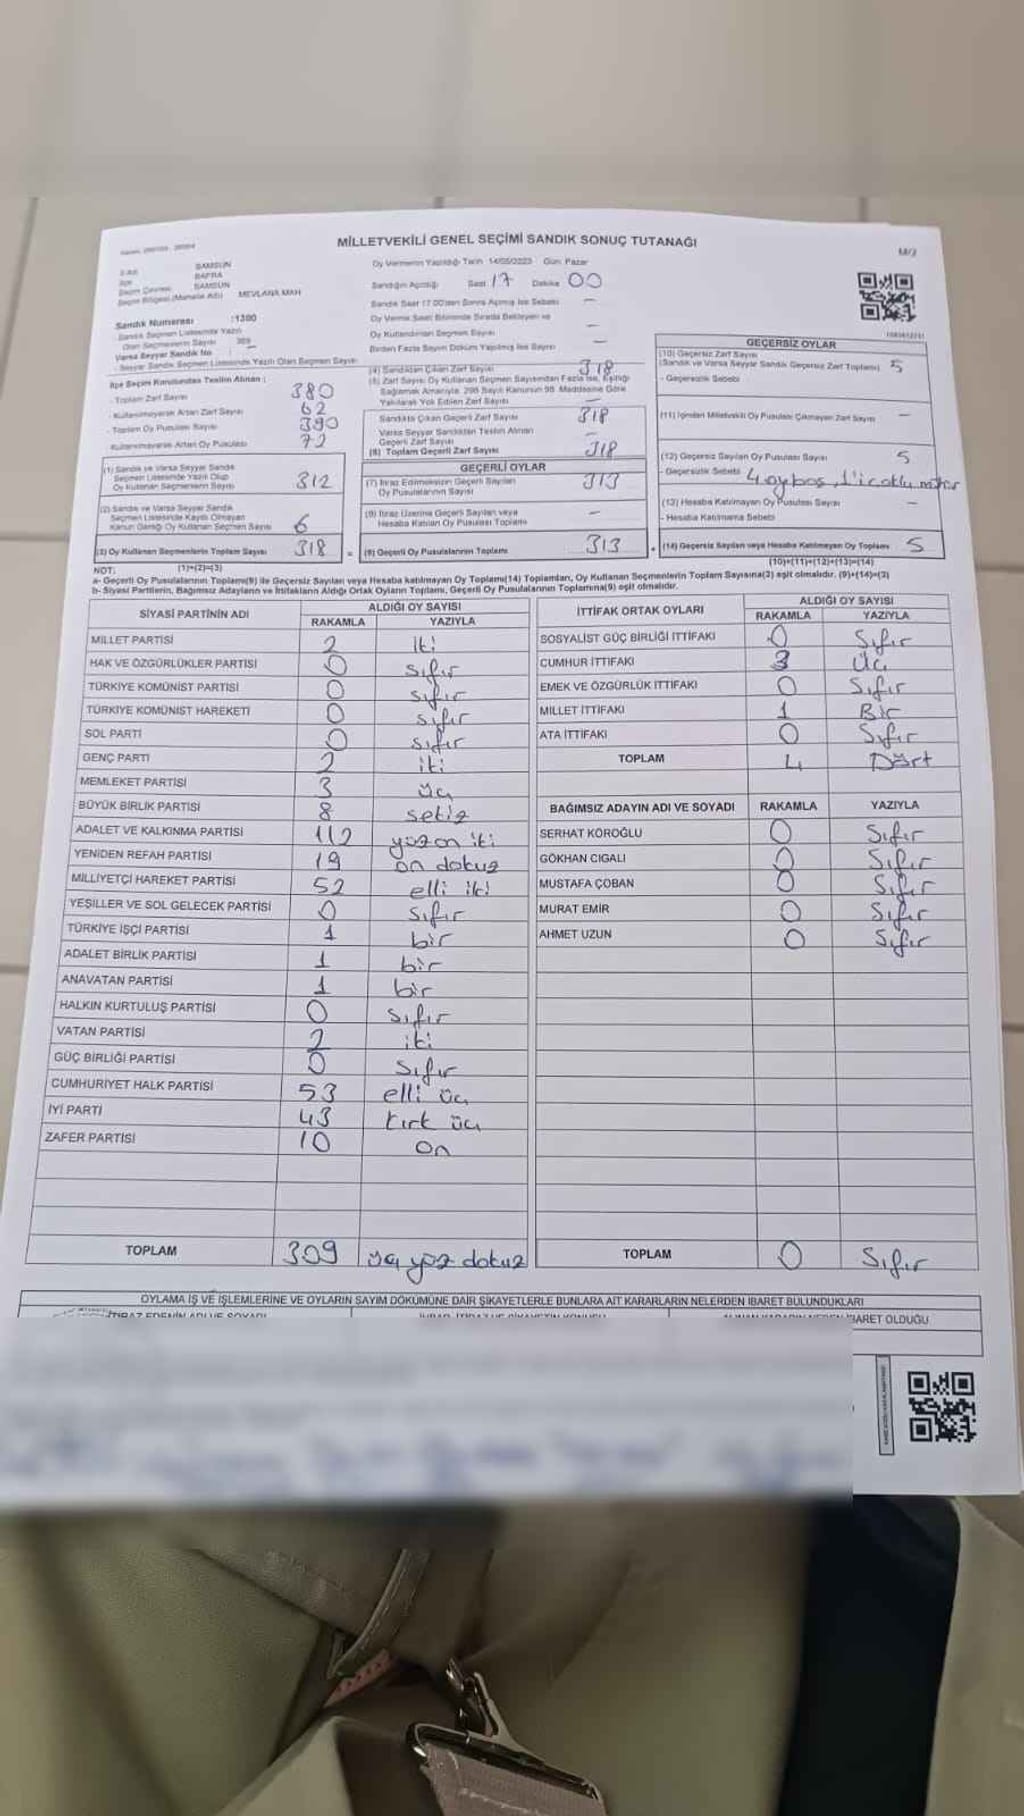 MİLLETVEKİLİ GENEL SEÇİMİ SANDIK SONUÇ TUTANAĞI
M/2
SAMSUN
BAFRA
SAMSUN
Seçim Bölgesi (Mahalle Adı) MEVLANA MAH
Oy Vermenin Yapıldığı Tarih 14/05/2023 Gün: Pazar
Sandığın Açıldığı Saat 17 Dakika 00
Sandık Saat 17.00'den Sonra Açılmış İse Sebebi –
Oy Verme Saati Bitiminde Sırada Bekleyen ve
Oy Kullandırılan Seçmen Sayısı –
Birden Fazla Sayım Döküm Yapılmış İse Sayısı –
Sandık Numarası :1300
Sandık Seçmen Listesinde Yazılı
Olan Seçmenlerin Sayısı 369
Varsa Seyyar Sandık No –
- Seyyar Sandık Seçmen Listesinde Yazılı Olan Seçmen Sayısı
İlçe Seçim Kurulundan Teslim Alınan :
- Toplam Zarf Sayısı 380
- Kullanılmayarak Artan Zarf Sayısı 62
- Toplam Oy Pusulası Sayısı 390
- Kullanılmayarak Artan Oy Pusulası 72
(1) Sandık ve Varsa Seyyar Sandık
Seçmen Listesinde Yazılı Olup
Oy Kullanan Seçmenlerin Sayısı 312
(2) Sandık ve Varsa Seyyar Sandık
Seçmen Listesinde Kayıtlı Olmayan
Kanun Gereği Oy Kullanan Seçmen Sayısı 6
(3) Oy Kullanan Seçmenlerin Toplam Sayısı 318
(1)+(2)=(3)
(4) Sandıktan Çıkan Zarf Sayısı 318
(5) Zarf Sayısı Oy Kullanan Seçmen Sayısından Fazla İse, Eşitliği
Sağlamak Amacıyla, 298 Sayılı Kanunun 98. Maddesine Göre
Yakılarak Yok Edilen Zarf Sayısı –
Sandıkta Çıkan Geçerli Zarf Sayısı 318
Varsa Seyyar Sandıktan Teslim Alınan
Geçerli Zarf Sayısı
(6) Toplam Geçerli Zarf Sayısı 318
GEÇERLİ OYLAR
(7) İtiraz Edilmeksizin Geçerli Sayılan
Oy Pusulalarının Sayısı 313
(8) İtiraz Üzerine Geçerli Sayılan veya
Hesaba Katılan Oy Pusulası Toplamı –
= (9) Geçerli Oy Pusulalarının Toplamı 313
GEÇERSİZ OYLAR
(10) Geçersiz Zarf Sayısı
(Sandık ve Varsa Seyyar Sandık Geçersiz Zarf Toplamı) 5
- Geçersizlik Sebebi
(11) İçinden Milletvekili Oy Pusulası Çıkmayan Zarf Sayısı –
(12) Geçersiz Sayılan Oy Pusulası Sayısı 5
- Geçersizlik Sebebi 4 oy boş
(13) Hesaba Katılmayan Oy Pusulası Sayısı –
- Hesaba Katılmama Sebebi
+ (14) Geçersiz Sayılan veya Hesaba Katılmayan Oy Toplamı 5
(10)+(11)+(12)+(13)=(14)
NOT:
a- Geçerli Oy Pusulalarının Toplamı(9) ile Geçersiz Sayılan veya Hesaba katılmayan Oy Toplamı(14) Toplamları, Oy Kullanan Seçmenlerin Toplam Sayısına(3) eşit olmalıdır. (9)+(14)=(3)
b- Siyasi Partilerin, Bağımsız Adayların ve İttifakların Aldığı Ortak Oyların Toplamı, Geçerli Oy Pusulalarının Toplamına(9) eşit olmalıdır.
SİYASİ PARTİNİN ADI ALDIĞI OY SAYISI
RAKAMLA YAZIYLA
MİLLET PARTİSİ 2 iki
HAK VE ÖZGÜRLÜKLER PARTİSİ 0 sıfır
TÜRKİYE KOMÜNİST PARTİSİ 0 sıfır
TÜRKİYE KOMÜNİST HAREKETİ 0 sıfır
SOL PARTİ 0 sıfır
GENÇ PARTİ 2 iki
MEMLEKET PARTİSİ 3 üç
BÜYÜK BİRLİK PARTİSİ 8 sekiz
ADALET VE KALKINMA PARTİSİ 112 yüz on iki
YENİDEN REFAH PARTİSİ 19 on dokuz
MİLLİYETÇİ HAREKET PARTİSİ 52 elli iki
YEŞİLLER VE SOL GELECEK PARTİSİ 0 sıfır
TÜRKİYE İŞÇİ PARTİSİ 1 bir
ADALET BİRLİK PARTİSİ 1 bir
ANAVATAN PARTİSİ 1 bir
HALKIN KURTULUŞ PARTİSİ 0 sıfır
VATAN PARTİSİ 2 iki
GÜÇ BİRLİĞİ PARTİSİ 0 sıfır
CUMHURİYET HALK PARTİSİ 53 elli üç
İYİ PARTİ 43 kırk üç
ZAFER PARTİSİ 10 on
TOPLAM 309 üç yüz dokuz
İTTİFAK ORTAK OYLARI ALDIĞI OY SAYISI
RAKAMLA YAZIYLA
SOSYALİST GÜÇ BİRLİĞİ İTTİFAKI 0 Sıfır
CUMHUR İTTİFAKI 3 Üç
EMEK VE ÖZGÜRLÜK İTTİFAKI 0 Sıfır
MİLLET İTTİFAKI 1 Bir
ATA İTTİFAKI 0 Sıfır
TOPLAM 4 Dört
BAĞIMSIZ ADAYIN ADI VE SOYADI RAKAMLA YAZIYLA
SERHAT KÖROĞLU 0 Sıfır
GÖKHAN CIGALI 0 Sıfır
MUSTAFA ÇOBAN 0 Sıfır
MURAT EMİR 0 Sıfır
AHMET UZUN 0 Sıfır
TOPLAM 0 Sıfır
OYLAMA İŞ VE İŞLEMLERİNE VE OYLARIN SAYIM DÖKÜMÜNE DAİR ŞİKAYETLERLE BUNLARA AİT KARARLARIN NELERDEN İBARET BULUNDUKLARI
İTİRAZ EDENİN ADI VE SOYADI
OLDUĞU